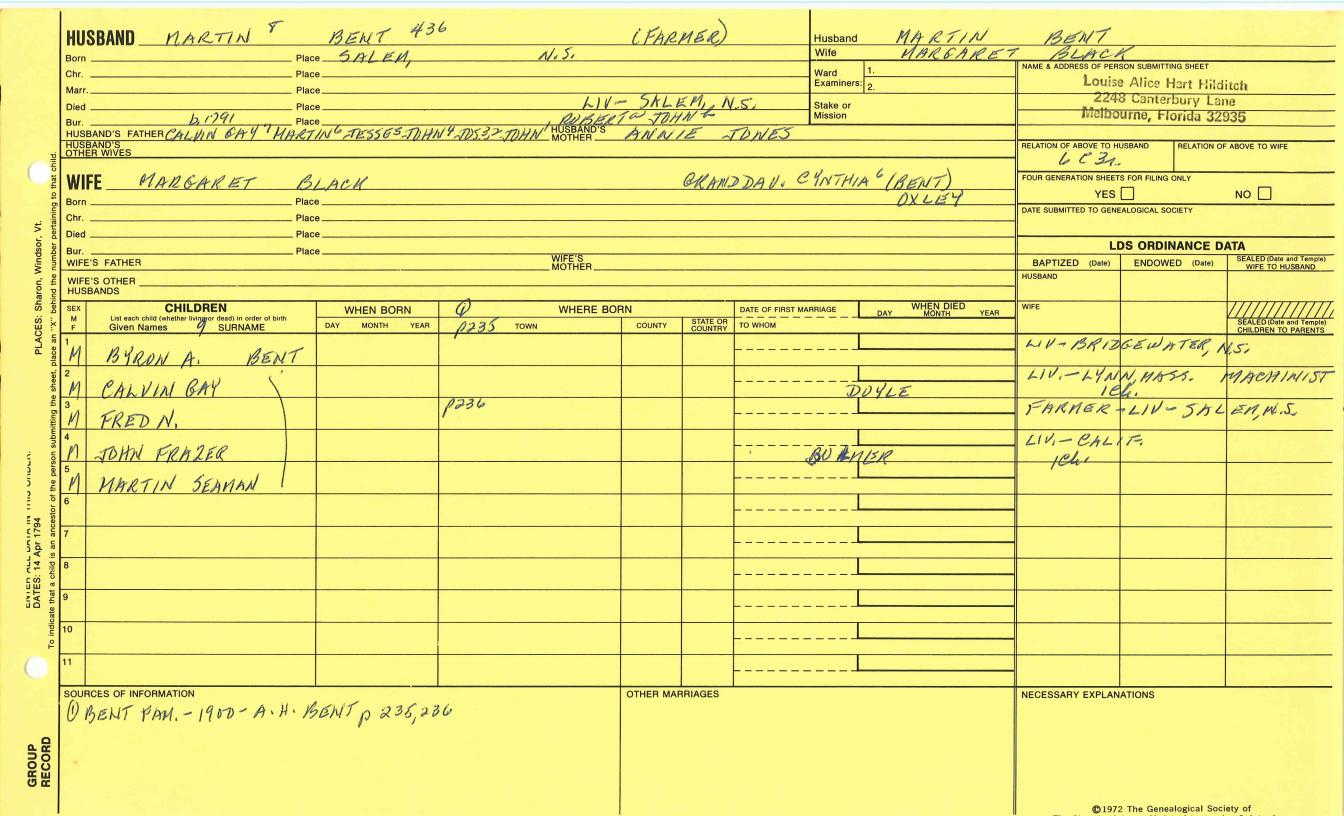 HUSBAND MARTIN 8 BENT 436 (FARMER)
Born Place SALEM, N.S.
Chr. Place
Marr. Place
Died Place LIV- SALEM, N.S.
Bur. b.1791 Place ROBERT JOHN
HUSBAND'S FATHER CALVIN GAY 7 MARTIN 6 JESSE 5 JOHN 4 JOS 3 2 JOHN 1 HUSBAND'S MOTHER ANNIE JONES
HUSBAND'S OTHER WIVES
Husband MARTIN BENT
Wife MARGARET BLACK
Ward Examiners: 1. 2.
Stake or Mission
NAME & ADDRESS OF PERSON SUBMITTING SHEET
Louise Alice Hart Hilditch
2248 Canterbury Lane
Melbourne, Florida 32935
RELATION OF ABOVE TO HUSBAND RELATION OF ABOVE TO WIFE
6 C 3r.
FOUR GENERATION SHEETS FOR FILING ONLY
YES NO
DATE SUBMITTED TO GENEALOGICAL SOCIETY
WIFE MARGARET BLACK GRANDDAU. CYNTHIA 6 (BENT)
Born Place OXLEY
Chr. Place
Died Place
Bur. Place
WIFE'S FATHER WIFE'S MOTHER
WIFE'S OTHER HUSBANDS
LDS ORDINANCE DATA
BAPTIZED (Date) ENDOWED (Date) SEALED (Date and Temple) WIFE TO HUSBAND
HUSBAND
WIFE
SEALED (Date and Temple) CHILDREN TO PARENTS
SEX M F CHILDREN WHEN BORN WHERE BORN DATE OF FIRST MARRIAGE WHEN DIED
List each child (whether living or dead) in order of birth
Given Names 9 SURNAME DAY MONTH YEAR p235 TOWN COUNTY STATE OR COUNTRY TO WHOM DAY MONTH YEAR
1 M BYRON A. BENT LIV-BRIDGEWATER, N.S.
2 M CALVIN GAY DOYLE LIV.-LYNN, MASS. MACHINIST 1Ch.
3 M FRED N. p236 FARMER-LIV-SALEM, N.S.
4 M JOHN FRAZER LIV.-CALIF. 1Ch.
5 M MARTIN SEAMAN
6
7
8
9
10
11
SOURCES OF INFORMATION
① BENT FAM.-1900-A.H. BENT p 235,236
OTHER MARRIAGES
NECESSARY EXPLANATIONS
©1972 The Genealogical Society of
PLACES: Sharon, Windsor, Vt.
DATES: 14 Apr 1794
To indicate that a child is an ancestor of the person submitting the sheet, place an "X" behind the number pertaining to that child.
GROUP RECORD